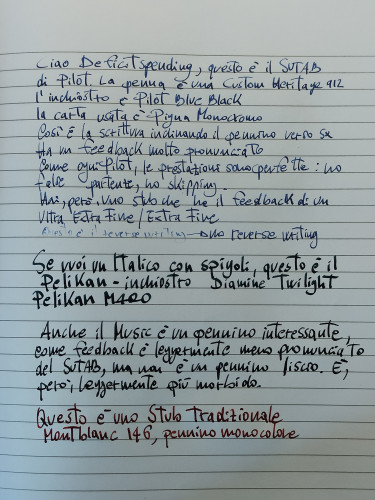 Ciao Deficitspending, questo è il SUTAB
di Pilot. La penna è una Custom Heritage 912
l'inchiostro è Pilot Blue Black
la carta usata è Pigna Monocromo
Così è la scrittura inclinando il pennino verso su
Ha un feedback molto pronunciato
Come ogni Pilot, le prestazioni sono perfette: no
false partente, no skipping.
Hai, però, uno stub che ha il feedback di un
Ultra Extra Fine/Extra Fine
Questo è il reverse writing — uno reverse writing
Se vuoi un Italico con spigoli, questo è il
Pelikan - inchiostro Diamine Twilight
Pelikan M400
Anche il Music è un pennino interessante,
come feedback è leggermente meno pronunciato
del SUTAB, ma non è un pennino liscio. È,
però, leggermente più morbido.
Questo è uno Stub Tradizionale
Montblanc 146, pennino monocolore